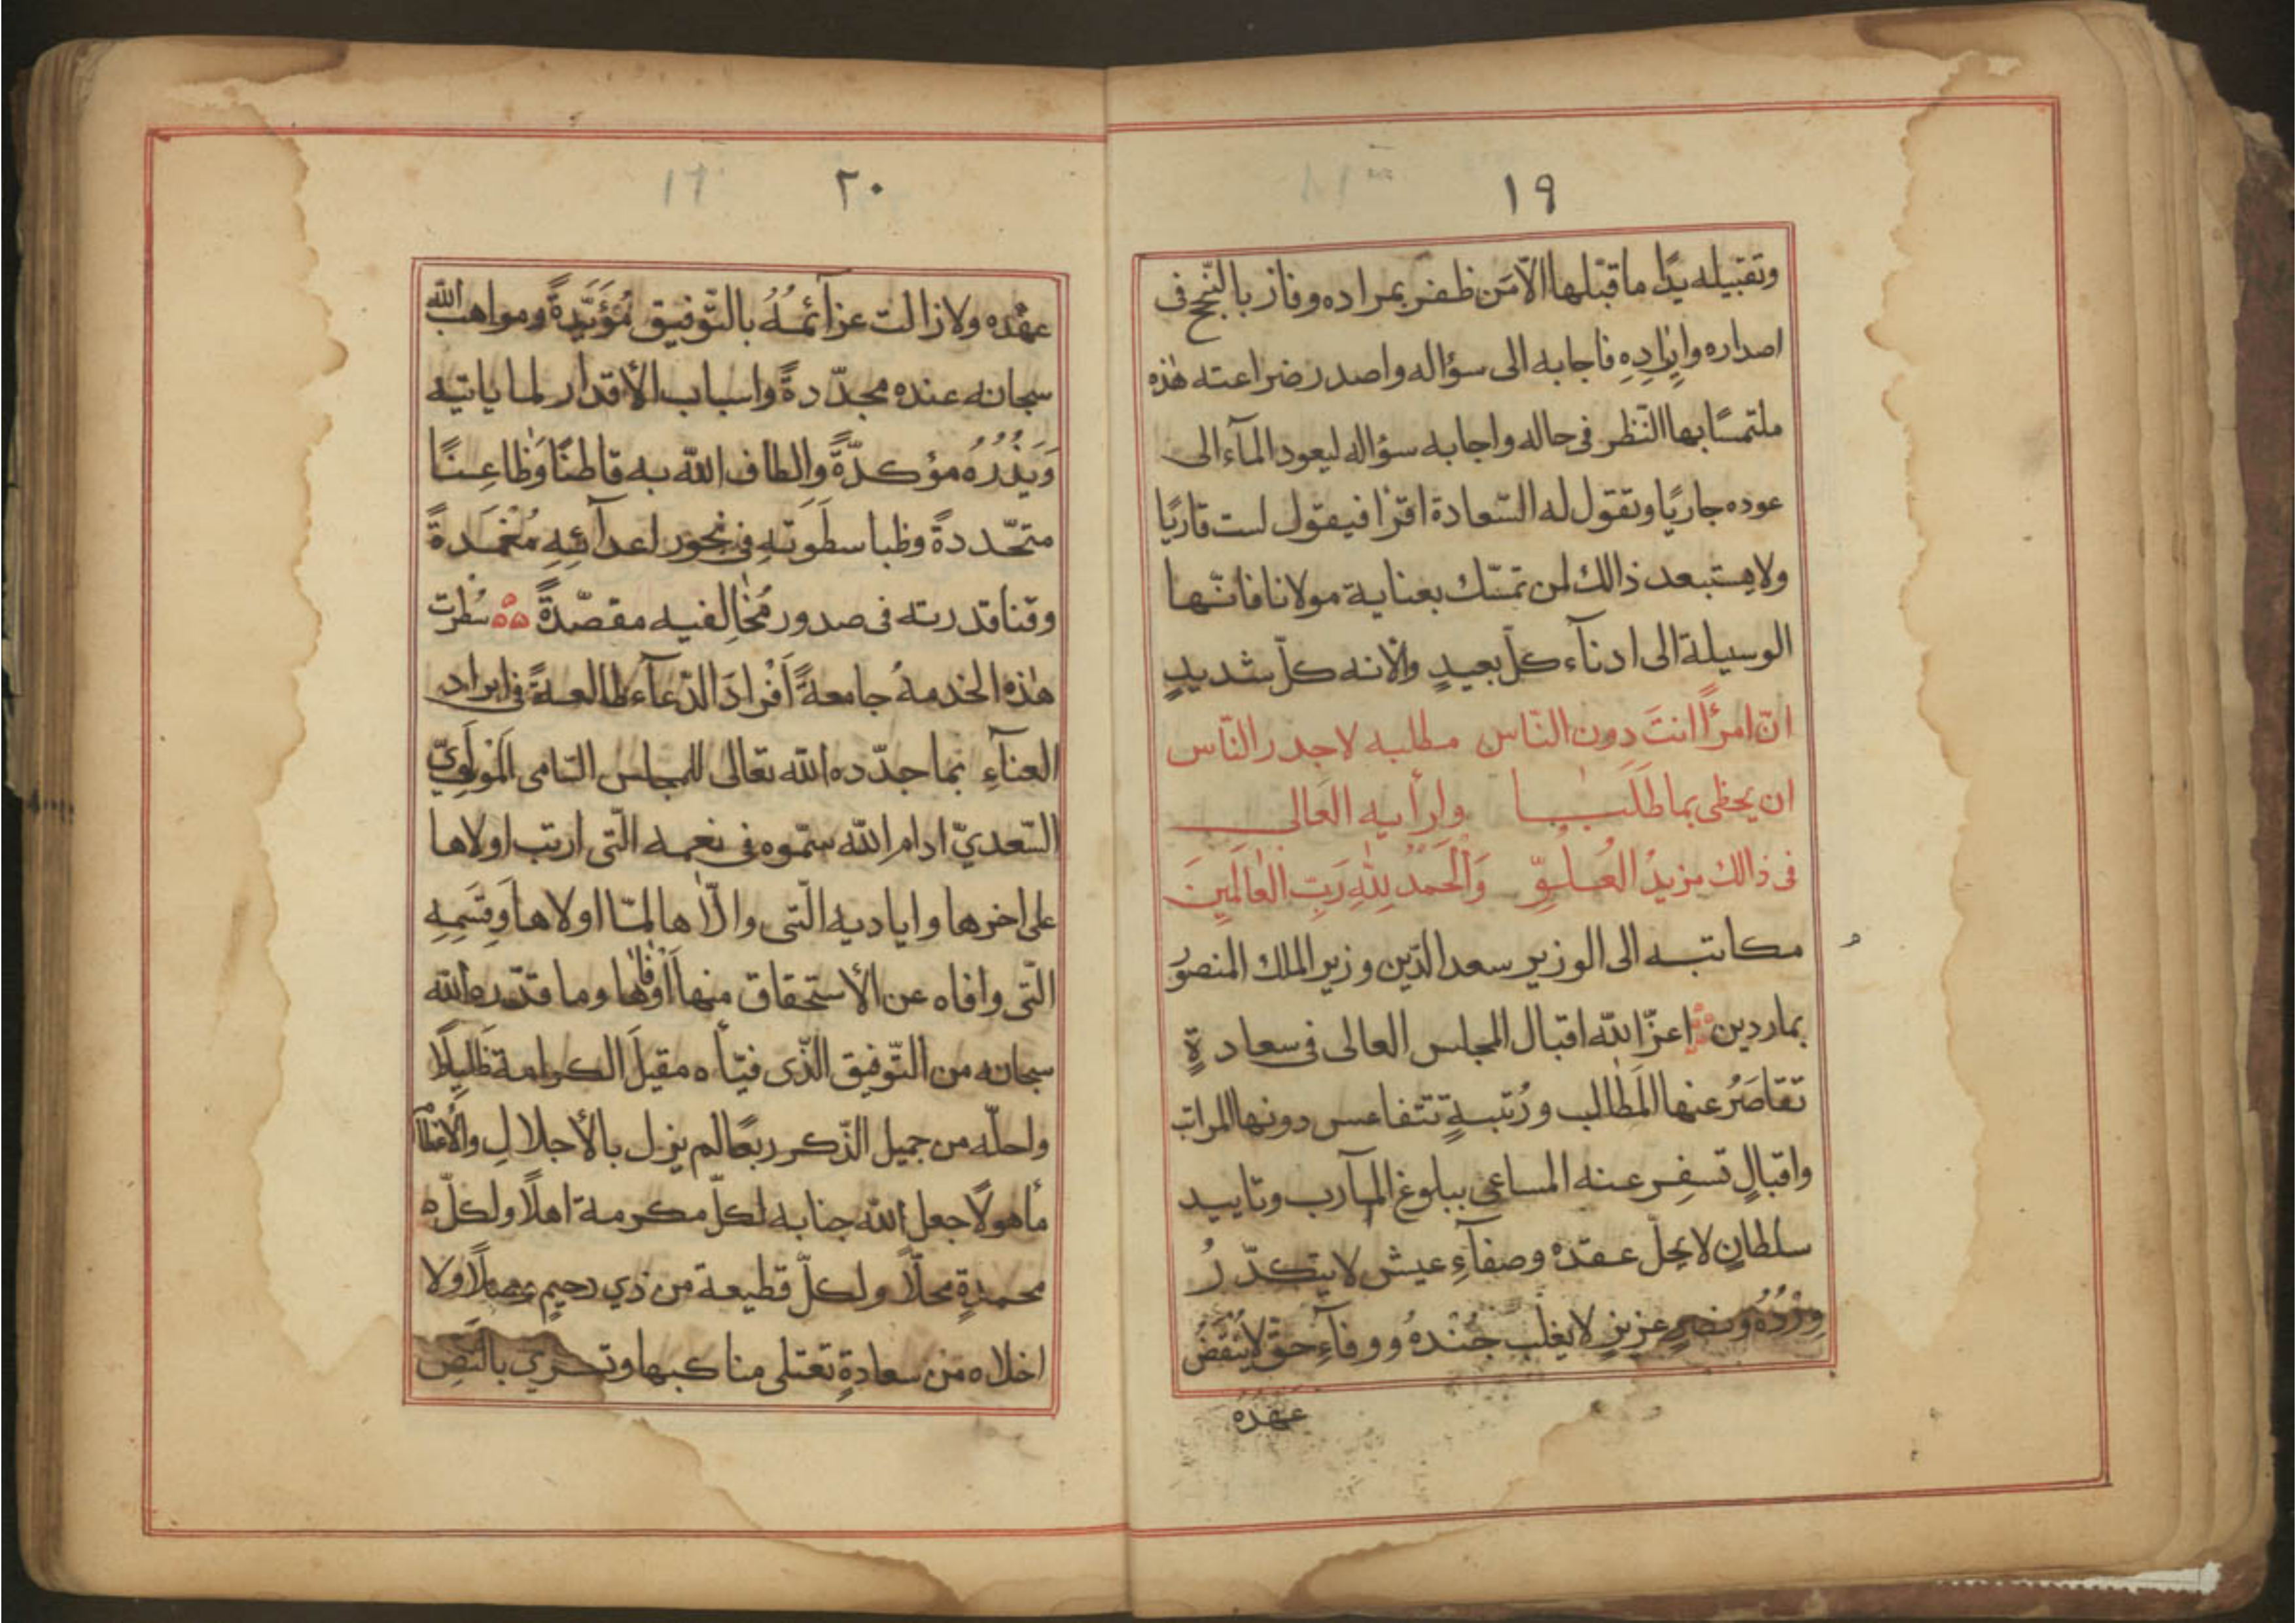 ١٩
وتقبيله يدًا ما قبّلها الّا مَن ظفر بمراده وفاز بالنّجح فى
اصداره وايرادِهِ فاجابه الى سؤاله واصدر ضراعته هٰذه
ملتمسًا بها النّظر فى حاله واجابه سؤاله ليعود المآء الى
عوده جاريًا وتقول له السّعادة اقرا فيقول لست قاريًا
ولا يستبعد ذالك لمن تمسّك بعناية مولانا فانّها
الوسيلة الى ادنآء كلّ بعيدٍ والانه كلّ شديدٍ
انّ امرًأ انتَ دون النّاس مطلبه لاجدر النّاس
ان يحظى بما طَلَبَا ولرأيه العَالى
فى ذالك مزيدُ العُلوِّ وَالْحَمدُ لِلّٰهِ رَبِّ العَالَمِينَ
مكاتبه الى الوزير سعد الدّين وزير الملك المنصوُر
بماردين اعزّ الله اقبال المجلس العالى فى سعادةٍ
تَقَاصَرُ عنها المَطالب ورُتبةٍ تتفاعس دونها المراتب
واقبالٍ تسفِر عنه المساعى ببلوغ المآرب وتاييد
سلطانٍ لا يحلّ عقده وصفآءِ عيش لا يتكدّرُ
وِرْدُهُ ونصرٍ عزيزٍ لا يغلب جُنْدهُ ووفآءِ حقٍّ لا يُنْقَضُ
عهدُهُ
٢٠
عهْده ولا زالت عزآئمُهُ بالتّوفيق مُؤَيَّدةً ومواهبُ الله
سبحانه عنده مجدّدةً واسباب الأقدار لما ياتيه
وَيَذُرُهُ مؤكدّةً والطاف الله به قاطنًا وَظاعِنًا
متجّددةً وظبا سطوَتهِ فى نحور اعدآئِهِ مُغْمَدةً
وقنا قدرته فى صدور مُخٰالِفيه مقصّدةً سُطِرت
هٰذه الخدمةُ جامعةً اَفْرادَ الدّعآء طالعةً فى ايراد
العنآءِ بما جدّده الله تعالى للمجلس السّامى المَوْلَوِيّ
السّعديّ ادام الله سّموه فى نعمه الّتى اربت اولاها
على اخرها واياديه الّتى والّاها لمّا اولاها وَقِسَمِهِ
الّتى وافاه عن الأستحقاق منها اَوْفٰاها وما قدّره الله
سبحانه من التّوفيق الذّى فيّأه مقيلَ الكرامة ظَلِيلًا
واحلّه من جميل الذّكر ربعًا لم يزل بالأجلالِ والأعظام
مأهولًا جعل الله جنابه لكلّ مكرمة اهلًا ولكلّ
محمدةٍ محلّاً ولكلّ قطيعة من ذي رحِيمٍ وصلًا ولا
اخلاه من سعادةٍ تعتلى مناكبها وتجري بالنَّصِ